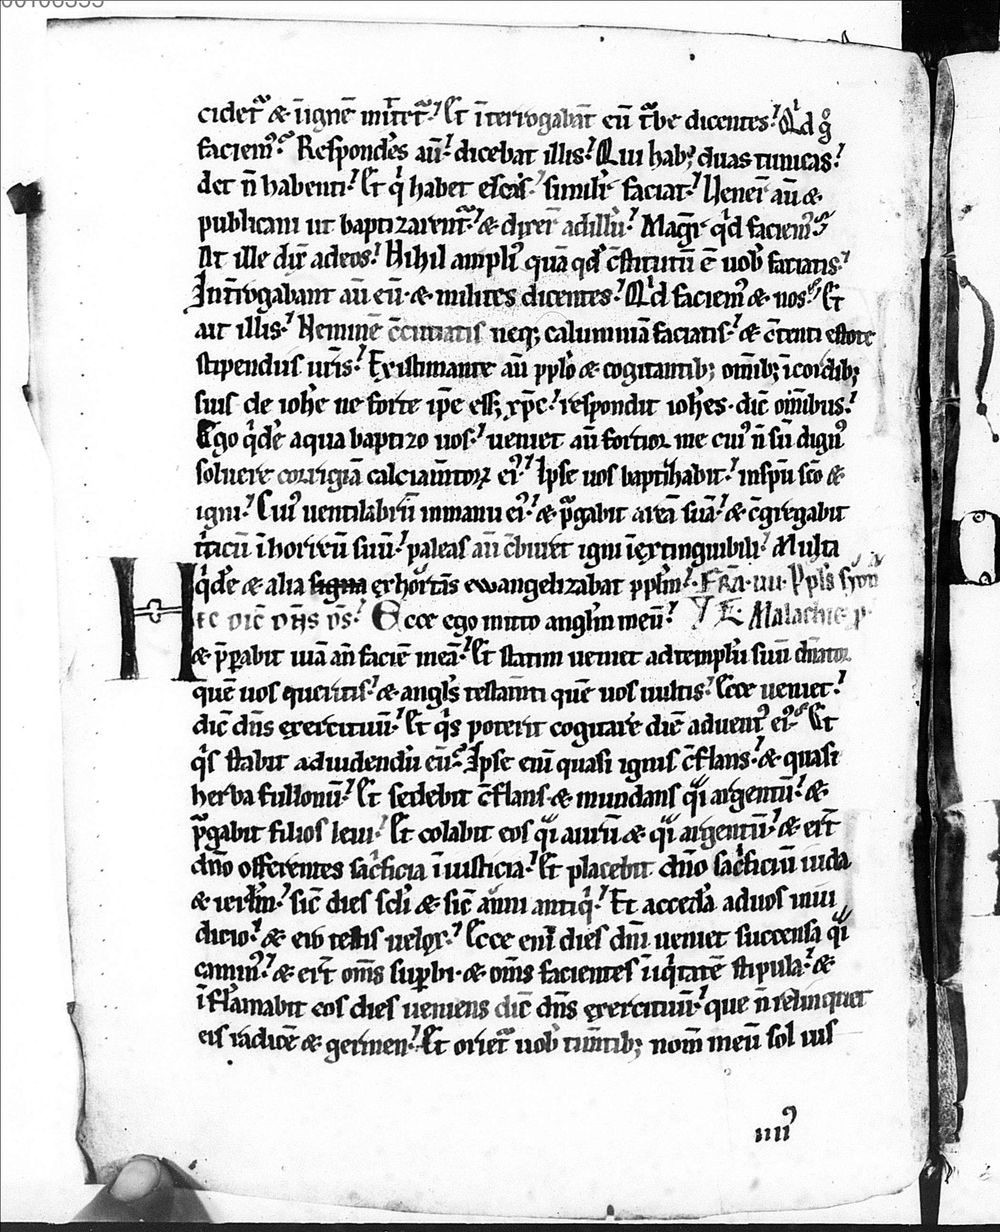 00106335
cidet᷑ & ı̄ignē mı̄tet᷑. Et ı̄terrogabāt eū t᷑be dicentes. Qⁱd gͦ
faciemꝰ. Respondēs aū. dicebat illis. Qui habꝫ duas tunicas.
det n̄ habenti. Et qⁱ habet escas. similiꝶ faciat. Ueneꝶ aū &
publicani ut baptizarent᷑. & dixeꝶ ad illū. Magꝶ qⁱd faciemꝰ
At ille dix̄ ad eos. Nihil ampliꝰ quā qd̓ c̄stitutū ē uob̄ faciatis.
Int̄rogabant aū eū. & milites dicentes. Qⁱd faciemꝰ & nos. Et
ait illis. Neminē c̄cutiatis neqꝫ calumniā faciatis. & c̄tenti estote
stipendiis ur̄is. Existimante aū pplo & cogitantibꝫ om̄ibꝫ ı̄ cordibꝫ
suis de ioh̄e ne forte ip̄e essꝫ xp̄c. respondit ioh̄es. dic̄ om̄ibus.
Ego qⁱdē aqua baptizo uos. ueniet aū fortior me cuiꝰ n̄ sū dignꝰ
soluere corrigiā calciam̄toꝝ eiꝰ. Ipse uos baptizabit. in sp̄u sc̄o &
igni. Cuiꝰ uentilabrū in manu eiꝰ. & pᷓgabit areā suā. & c̄gregabit
tⁱticū ı̄ horreū suū. paleas aū c̄buret igni ı̄extinguibili. Multa
qⁱdē & alia signa exhortās ewangelizabat pplm̄. Fr̄a. iiii. Ppl̄s syon
H
ec dic̄ dn̄s ds̄. Ecce ego mitto angl̄m meū. Malachie p.
& p̄parabit uiā an̄ faciē meā. Et statim ueniet ad templū suū dn̄ator
quē uos queritis. & angl̄s testam̄ti quē uos uultis. Ecce ueniet.
dic̄ dn̄s exercituū. Et qⁱs poterit cogitare diē aduentꝰ eiꝰ. Et
qⁱs stabit ad uidendū eū. Ipse eni quasi ignis c̄flans. & quasi
herba fullonū. Et sedebit c̄flans. & mundans qⁱi argentū. &
pᷓgabit filios leui. Et colabit eos qⁱi aurū & qⁱi argentū. & er̄t
dn̄o offerentes sacⁱficia ı̄ iusticia. Et placebit dn̄o sacⁱficiū iuda
& ierlm̄. sic̄ dies scl̄i & sic̄ anni antiqⁱ. Et accedā ad uos in iu
dicio. & ero testis uelox. Ecce eni dies dn̄i ueniet succensa qⁱi
caminꝰ. & er̄t om̄s supꝑbi. & om̄s facientes ı̄iqⁱtatē stipula. &
ı̄flāmabit eos dies ueniens dic̄ dn̄s exercituū. que n̄ relinquet
eis radicē & germen. Et oriet᷑ uob̄ tim̄tibꝫ nom̄ meū sol ius
iiiiꝰ